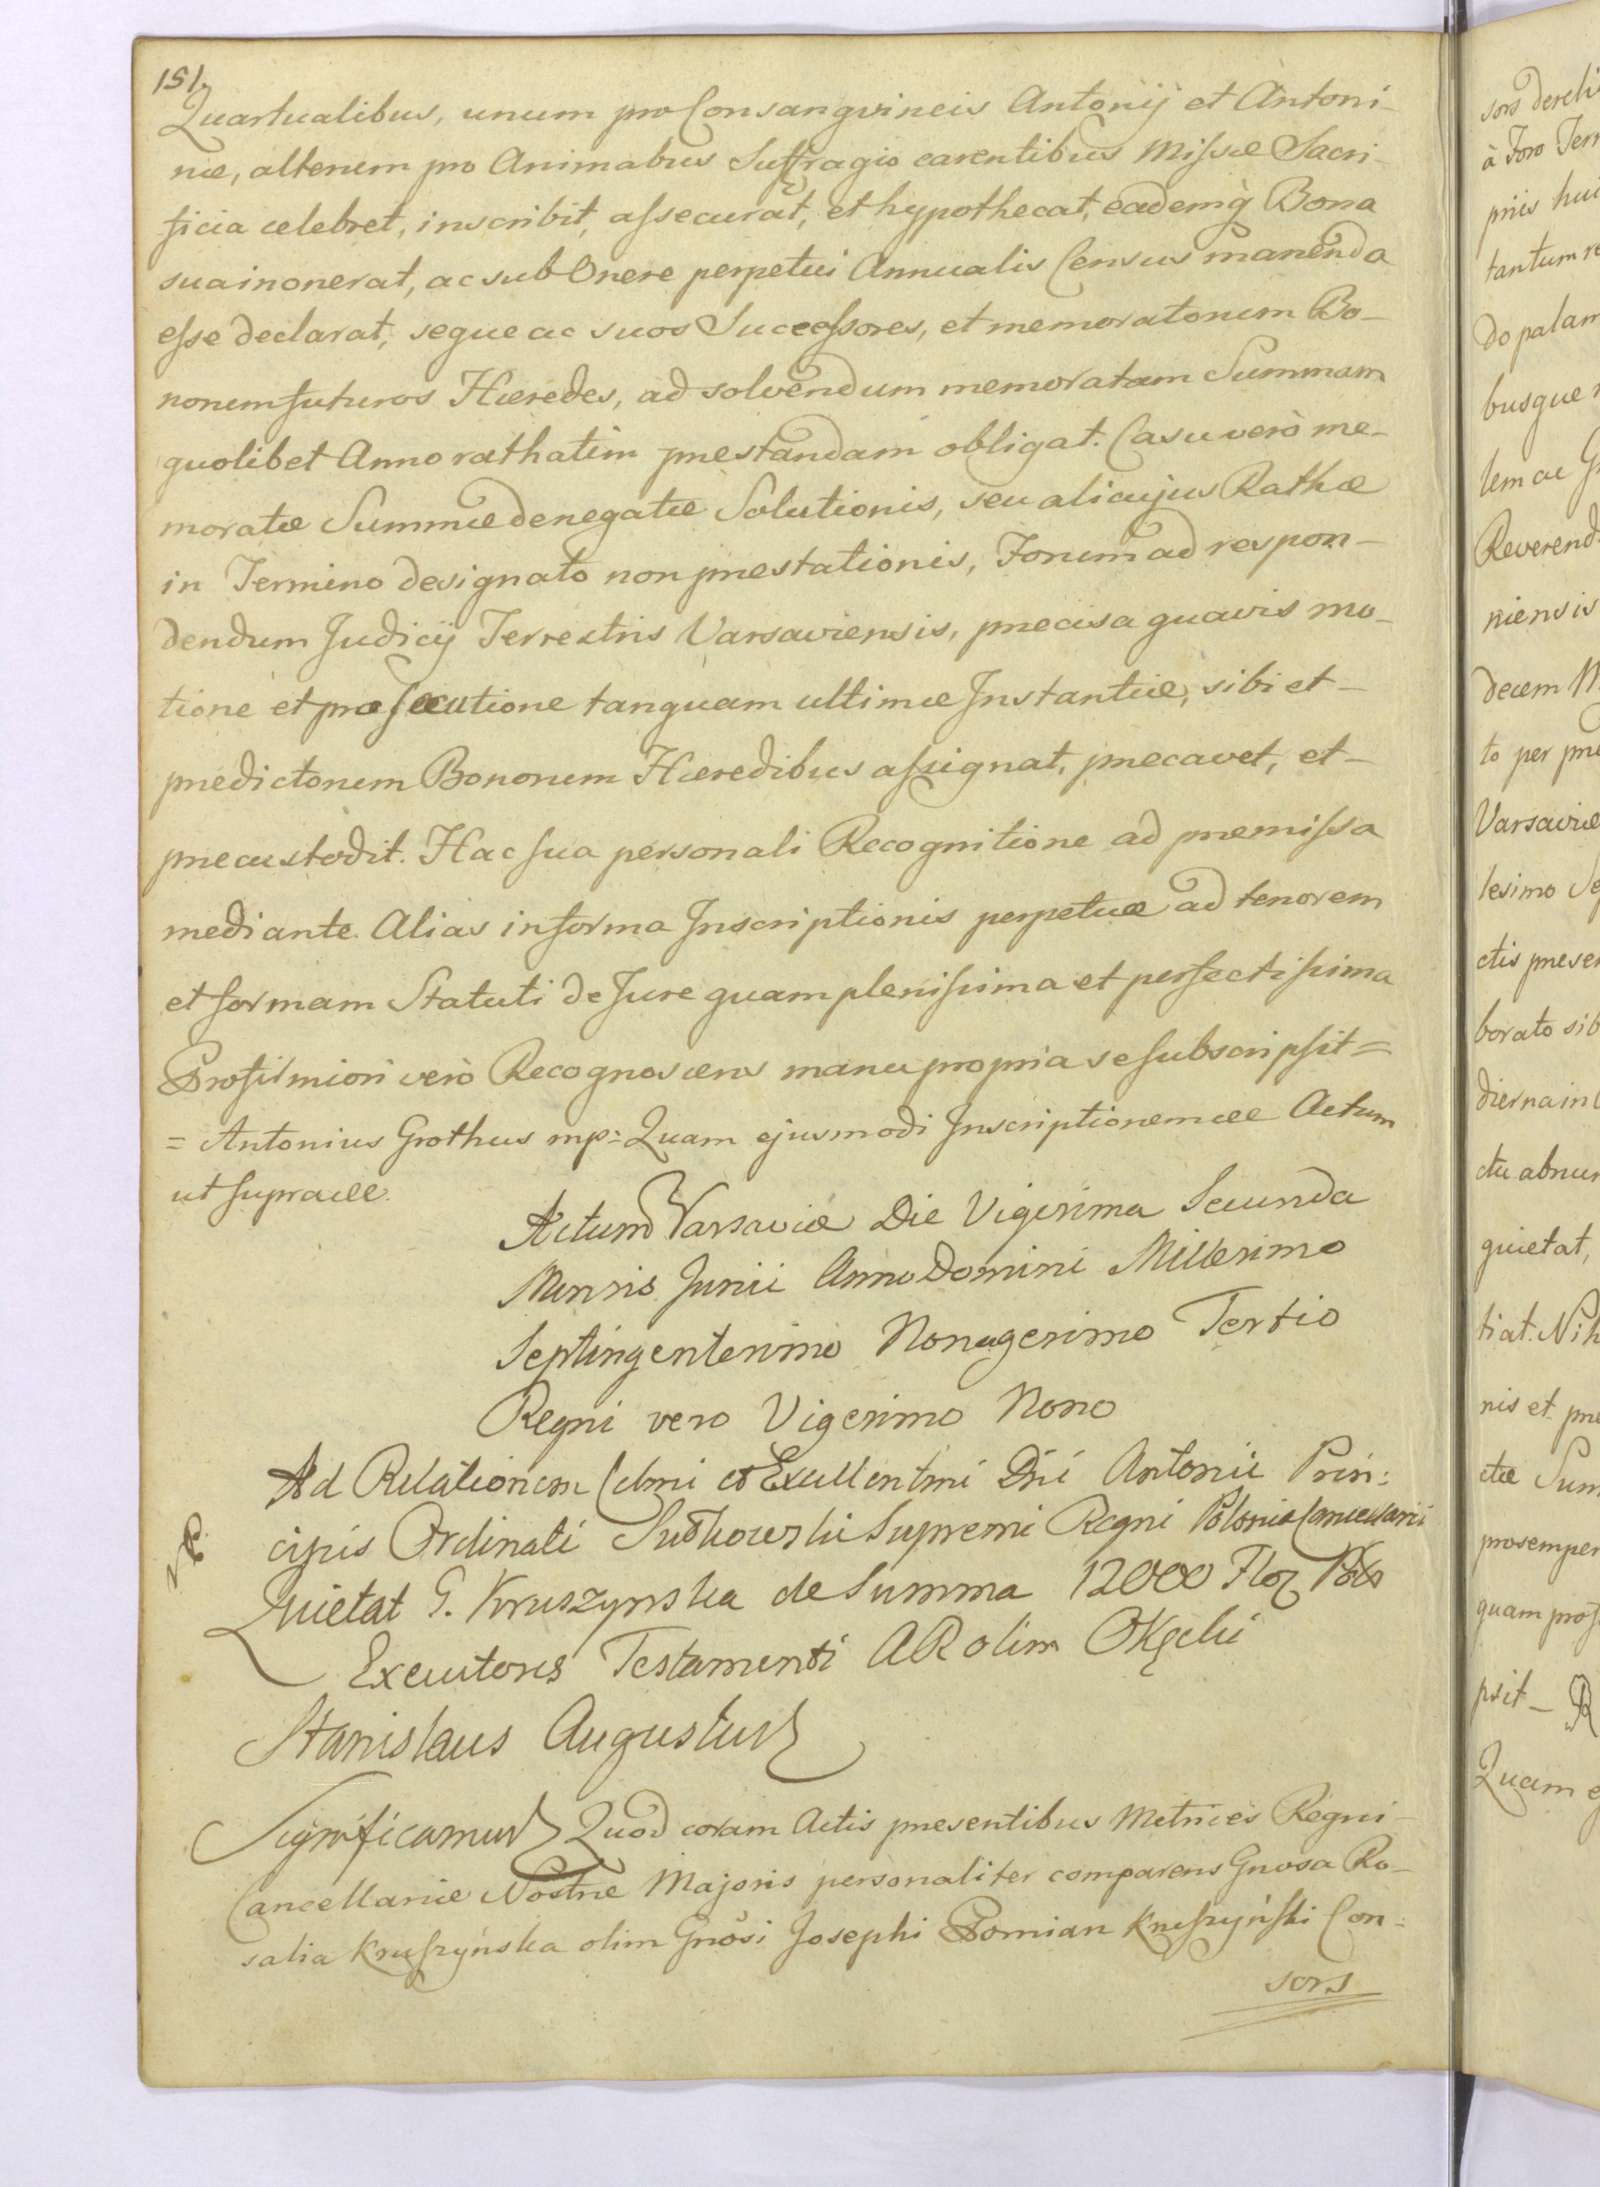 151.
Quartualibus, unum pro Consangvineis Antonij et Antoni-
næ, alterum pro Animabus Suffragio carentibus Missæ Sacri-
ficia celebret, inscribit, assecurat, et hypothecat, eademq̀ Bona
sua inonerat, ac sub Onere perpetui Annualis Census manenda
esse declarat, seque ac suos Successores, et memoratorum Bo-
norum futuros Hæredes, ad solvendum memoratam Summam
quolibet Anno rathatim præstandam obligat. Casu verò me-
moratæ Summæ denegatæ Solutionis, seu alicujus Rathæ
in Termino designato non præstationis, Forum ad respon-
dendum Judicij Terrestris Varsaviensis, præcisa quavis mo-
tione et prosecutione tanquam ultimæ Instantiæ, sibi et
prædictorum Bonorum Hæredibus assignat, præcavet, et
præcustodit. Hac sua personali Recognitione ad præmissa
mediante. Alias in forma Inscriptionis perpetuæ ad tenorem
et formam Statuti de Jure quam plenissima et perfectissima
Pro firmiori verò Recognoscens manu propria se subscripsit =
= Antonius Grothus mp: Quam ejusmodi Inscriptionem etc Actum
ut supra etc.
Actum Varsaviæ Die Vigesima Secunda
Mensis Junii Anno Domini Millesimo
Septingentesimo Nonagesimo Tertio
Regni vero Vigesimo Nono
Ad Relationem Celsmi et Excellentmi Dni Antonii Prin:
cipis Ordinati Sułkowski Supremi Regni Poloniæ Cancellarii
Quietat G. Kruszynska de Summa 12000 Flor Pol
Executores Testamenti AR olim Okęcki
Stanislaus Augustus
Significamus Quod coram Actis præsentibus Metrices Regni
Cancellariæ Nostræ Majoris personaliter comparens Gnosa Ro-
salia Kruszyńska olim Gnosi Josephi Pomian Kruszyński Con-
sors